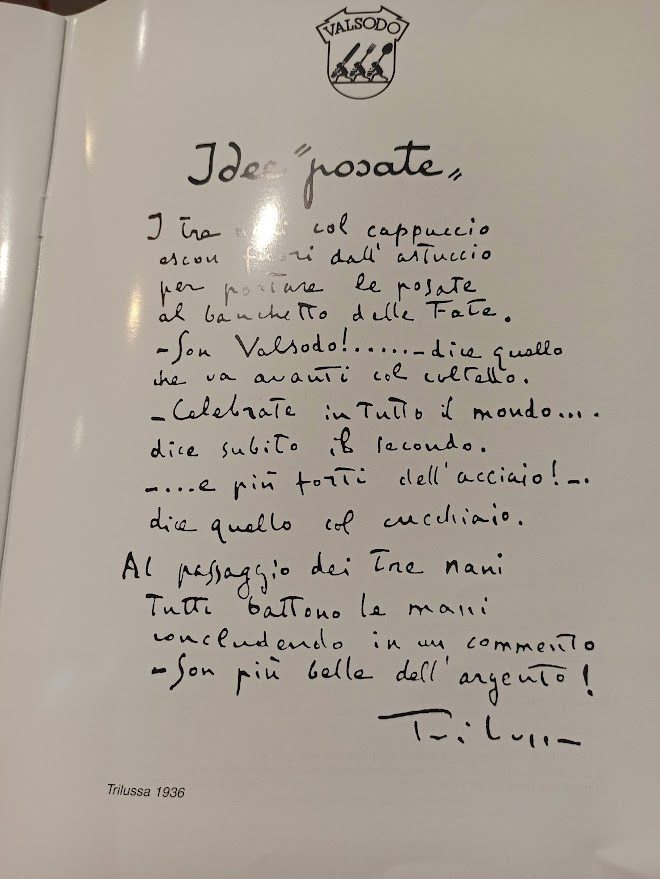 VALSODO
Idee "posate"
I tre col cappuccio
escon fuori dall'astuccio
per portare le posate
al banchetto delle Fate.
-Son Valsodo!.....-dice quello
che va avanti col coltello.
-Celebrate in tutto il mondo....
dice subito il secondo.
-....e più forti dell'acciaio!-.
dice quello col cucchiaio.
Al passaggio dei tre nani
tutti battono le mani
concludendo in un commento
-Son più belle dell'argento!
Trilussa
Trilussa 1936